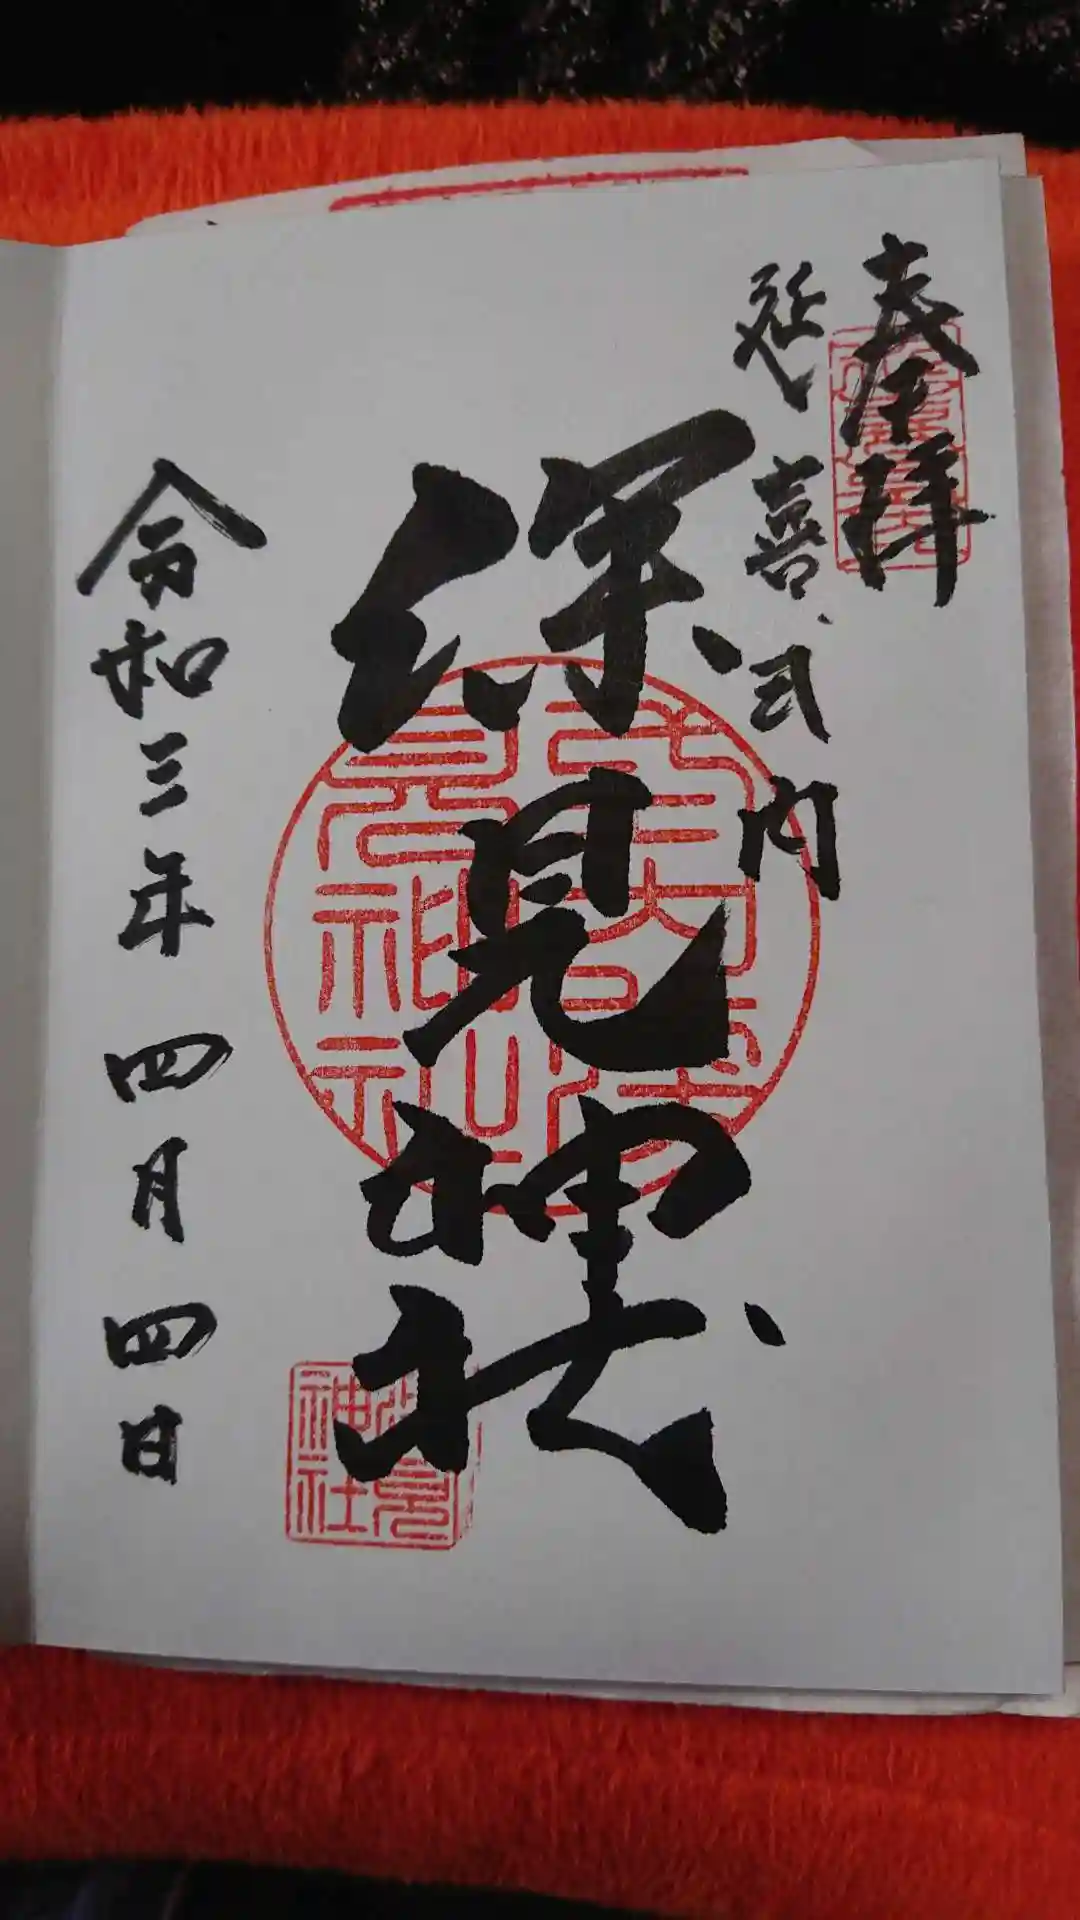 奉拝
延喜式内
深見神社
令和三年 四月 四日
深見神社